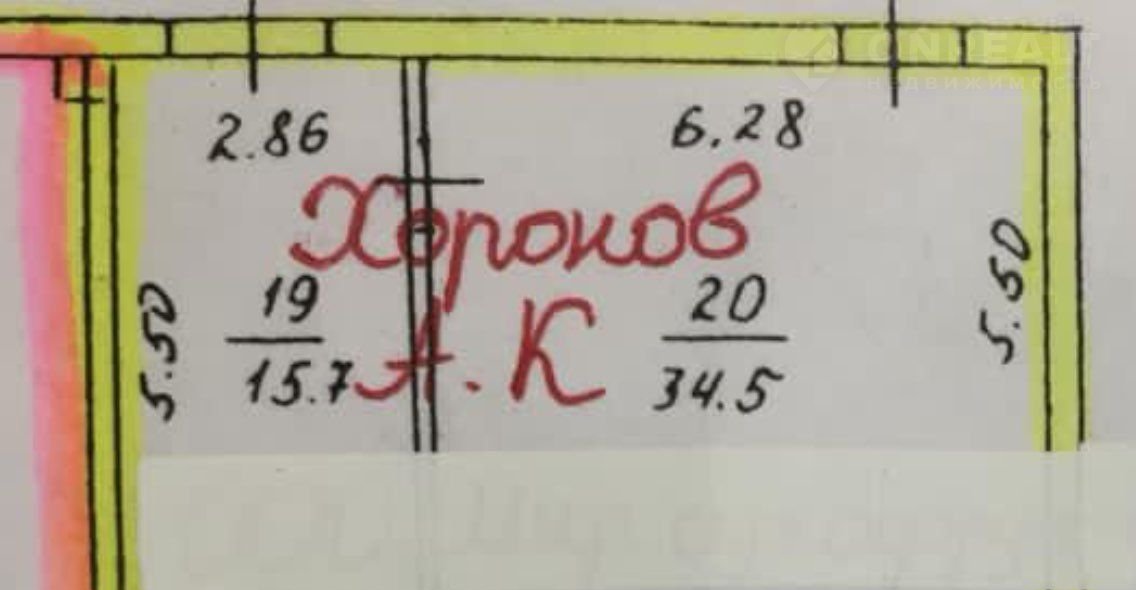 ONREALT
НЕДВИЖИМОСТЬ
2.86 6.28
Хоронов
5.50 5.50
19 20
15.7 34.5
А. К